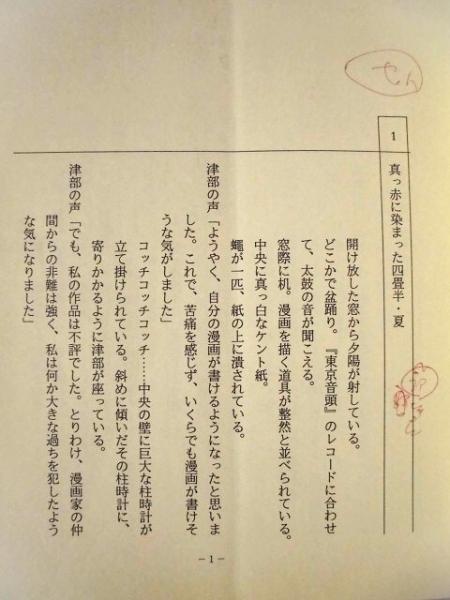 せん
1
真っ赤に染まった四畳半・夏
開け放した窓から夕陽が射している。
どこかで盆踊り。『東京音頭』のレコードに合わせ
て、太鼓の音が聞こえる。
窓際に机。漫画を描く道具が整然と並べられている。
中央に真っ白なケント紙。
蠅が一匹、紙の上に潰されている。
津部の声「ようやく、自分の漫画が書けるようになったと思いま
した。これで、苦痛を感じず、いくらでも漫画が書けそ
うな気がしました」
コッチコッチコッチ……中央の壁に巨大な柱時計が
立て掛けられている。斜めに傾いだその柱時計に、
寄りかかるように津部が座っている。
津部の声「でも、私の作品は不評でした。とりわけ、漫画家の仲
間からの非難は強く、私は何か大きな過ちを犯したよう
な気になりました」
－1－